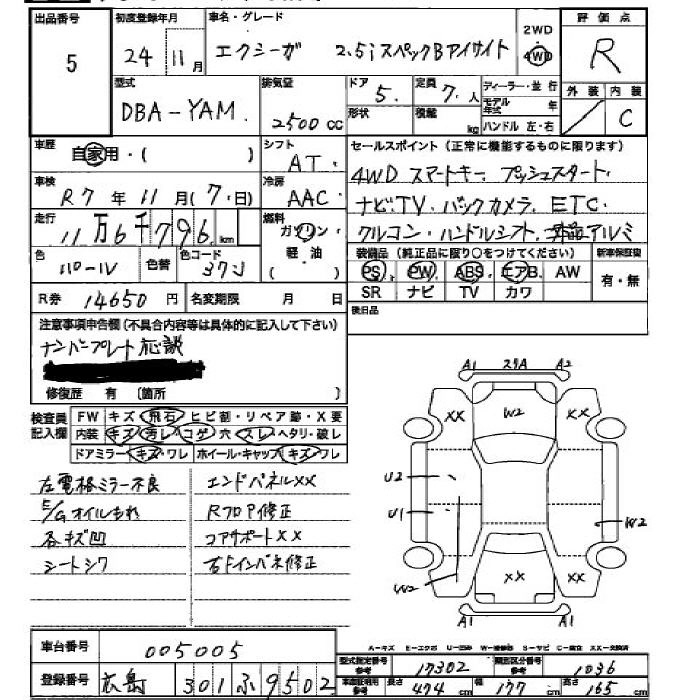 出品番号 初度登録年月 車名・グレード 評価点
5 24 11月 エクシーガ 2.5i スペックBアイサイト 2WD 4WD R
型式 排気量 ドア 定員 ディーラー・並行 外装 内装
DBA-YAM 2500cc 5. 7.人 モデル年式 年 C
形状 積載 kg ハンドル 左・右
車歴 自家用・( ) シフト AT. セールスポイント(正常に機能するものに限ります)
車検 R7年11月(7.日) 冷房 AAC. 4WD スマートキー. プッシュスタート.
走行 11万6千796km 燃料 ガソリン・軽油( ) ナビTV. バックカメラ. ETC.
クルコン・ハンドルシフト. アルミ
色 色替 色コード 37J 装備品(純正品に限り○をつけてください) 新車保証書
PS PW ABS エアB. AW 有・無
R券 14650円 名変期限 月 日 SR ナビ TV カワ
注意事項申告欄(不具合内容等は具体的に記入して下さい) 後日品
ナンバープレート
修復歴 有 〔箇所 〕
検査員記入欄 FW キズ・飛石・ヒビ割・リペア跡・X要
内装 キズ・汚レ・コゲ・穴・スレ・ヘタリ・破レ
ドアミラー・キズ・ワレ ホイール・キャップ・キズ・ワレ
左電格ミラー不良 エンドパネルXX
E/Gオイルもれ Rフロア修正
各キズ凹 コアサポートXX
シートシワ 右Fインパネ修正
A1 A2
XX W2 XX
U2
U1
W2 W2
XX XX
A1 A1
車台番号 005005
登録番号 広島 301 ふ 9502
型式指定番号 参考 17302 類別区分番号 参考 1036
参考 長さ 474cm 幅 177cm 高さ 165cm